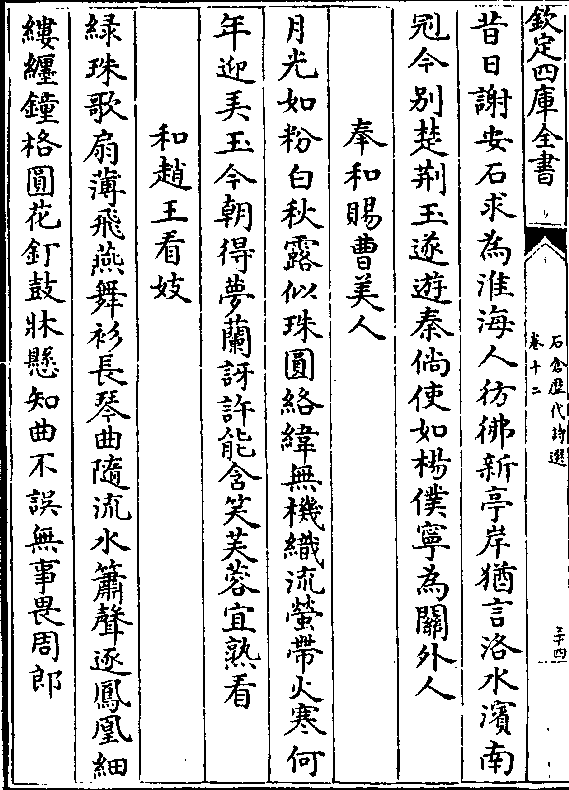 欽定四庫全書
石倉歷代詩選
卷十二
三十四
昔日謝安石求為淮海人彷彿新亭岸猶言洛水濱南
冠今別楚荆玉遂遊秦倘使如楊僕寧為關外人
奉和賜曹美人
月光如粉白秋露似珠圓絡緯無機織流螢帶火寒何
年迎美玉今朝得夢蘭訝許能含笑芙蓉宜熟看
和趙王看妓
緑珠歌扇薄飛燕舞衫長琴曲隨流水簫聲逐鳳凰細
縷纒鐘格圓花釘鼓牀懸知曲不誤無事畏周郎